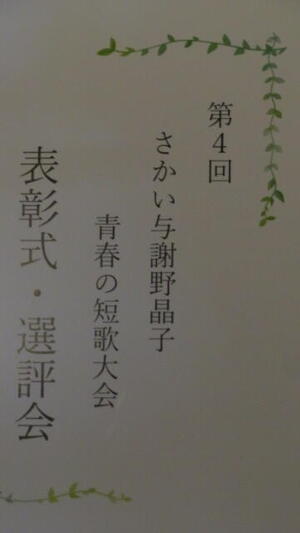 第4回
さかい与謝野晶子
青春の短歌大会
表彰式・選評会